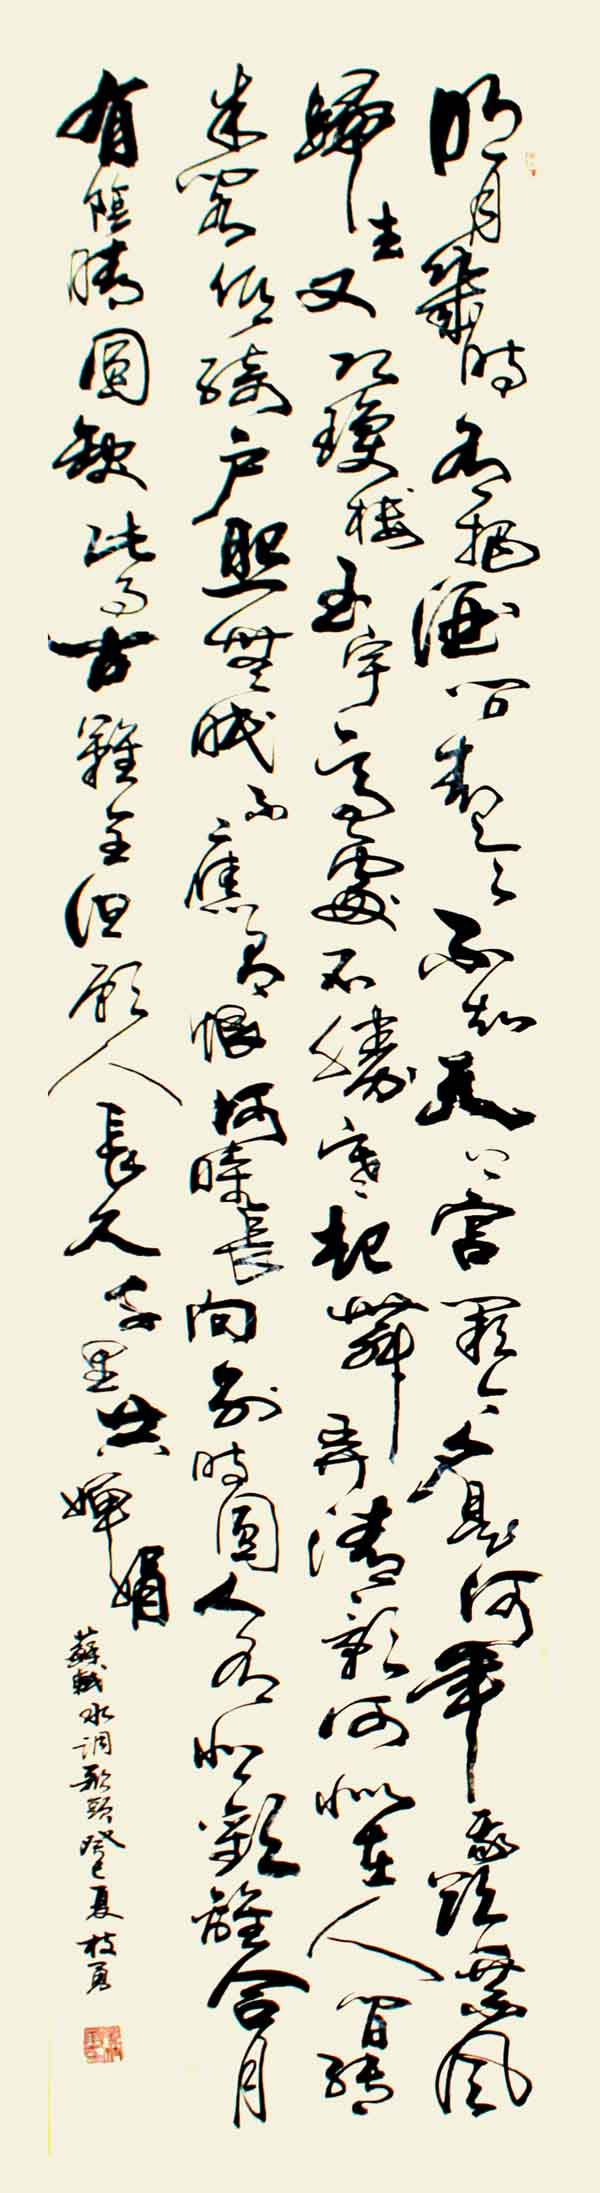 明月幾時有把酒問青天不知天上宮闕今夕是何年我欲乘風
歸去又恐瓊樓玉宇高處不勝寒起舞弄清影何似在人間轉
朱閣低綺户照無眠不應有恨何時長向別時圓人有悲歡離合月
有陰晴圓缺此事古難全但願人長久千里共嬋娟
蘇軾水調歌頭癸巳夏枝勇